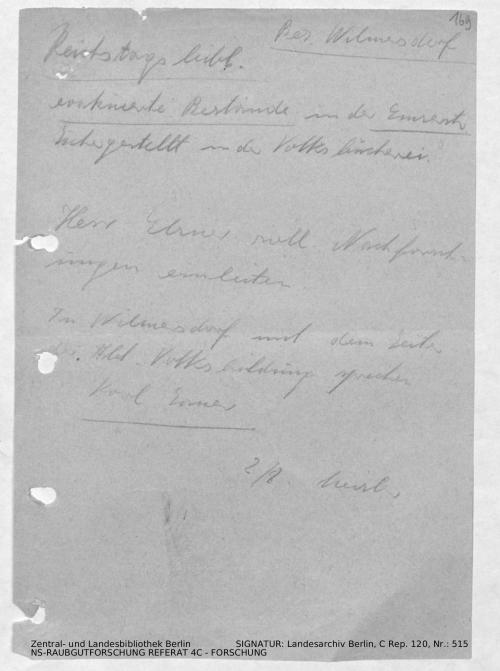 169
Bez. Wilmersdorf
Reichstagsbibl.
evakuierte Bestände in der Emserstr.
sichergestellt in der Volksbücherei.
Herr Elsner soll Nachforsch-
ungen einleiten.
In Wilmersdorf mit dem Leiter
der Abt. Volksbildung sprechen
Karl
2/8.
Zentral- und Landesbibliothek Berlin SIGNATUR: Landesarchiv Berlin, C Rep. 120, Nr.: 515
NS-RAUBGUTFORSCHUNG REFERAT 4C - FORSCHUNG